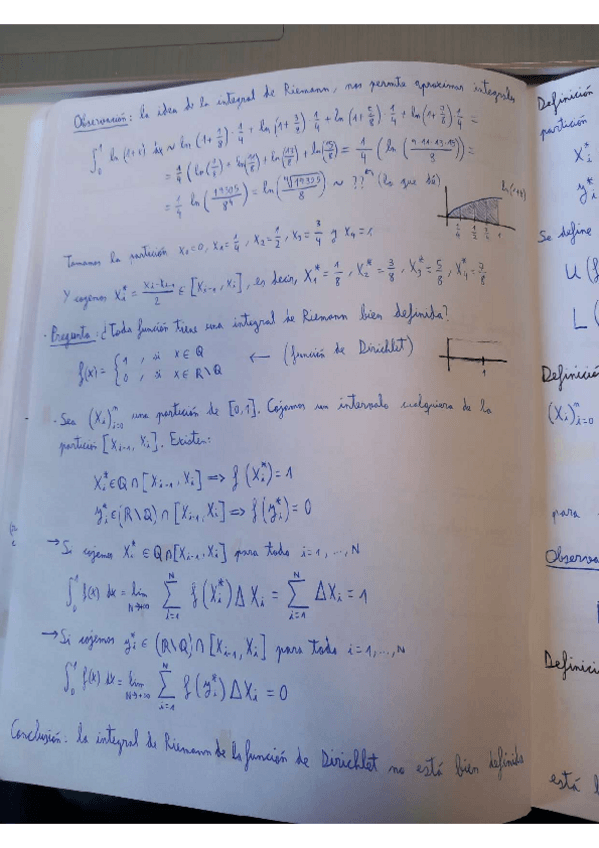 Observación: la idea de la integral de Riemann, nos permite aproximar integrales
∫₀¹ ln(1+x) dx ~ ln(1+1/8)·1/4 + ln(1+3/8)·1/4 + ln(1+5/8)·1/4 + ln(1+7/8)1/4 =
= 1/4 (ln(9/8) + ln(11/8) + ln(13/8) + ln(15/8)) = 1/4 (ln(9·11·13·15/8)) =
= 1/4 ln(19305/8⁴) = ln(⁴√19305/8) ~ ?? (lo que dé)
ln(1+x)
1/4 1/2 3/4 1
Tomamos la partición x₀=0, x₁=1/4, x₂=1/2, x₃=3/4 y x₄=1
Y cogemos xᵢ* = /2 ∈ [xᵢ₋₁, xᵢ], es decir, x₁*=1/8, x₂*=3/8, x₃*=5/8, x₄*=7/8
· Pregunta: ¿Toda función tiene una integral de Riemann bien definida?
f(x) = { 1, si x∈ℚ
0, si x∈ℝ\ℚ ← (función de Dirichlet)
1
· Sea (xᵢ)ⁿᵢ₌₀ una partición de [0,1]. Cojamos un intervalo cualquiera de la
partición [xᵢ₋₁, xᵢ]. Existen:
xᵢ*∈ℚ∩[xᵢ₋₁, xᵢ] ⇒ f(xᵢ*)=1
yᵢ*∈(ℝ\ℚ)∩[xᵢ₋₁, xᵢ] ⇒ f(yᵢ*)=0
→ Si cojemos xᵢ* ∈ ℚ∩[xᵢ₋₁, xᵢ] para todo i=1,...,N
∫₀¹ f(x) dx = lim N→+∞ ∑ᵢ₌₁ᴺ f(xᵢ*)Δxᵢ = ∑ᵢ₌₁ᴺ Δxᵢ = 1
→ Si cojemos yᵢ* ∈ (ℝ\ℚ)∩[xᵢ₋₁, xᵢ] para todo i=1,...,N
∫₀¹ f(x) dx = lim N→+∞ ∑ᵢ₌₁ᴺ f(yᵢ*)Δxᵢ = 0
Conclusión: la integral de Riemann de la función de Dirichlet no está bien definida
Definición
partición
xᵢ*
yᵢ*
Se define
U(f
L(
Definició
(xᵢ)ⁿᵢ₌₀
para
Observa
Definici
está